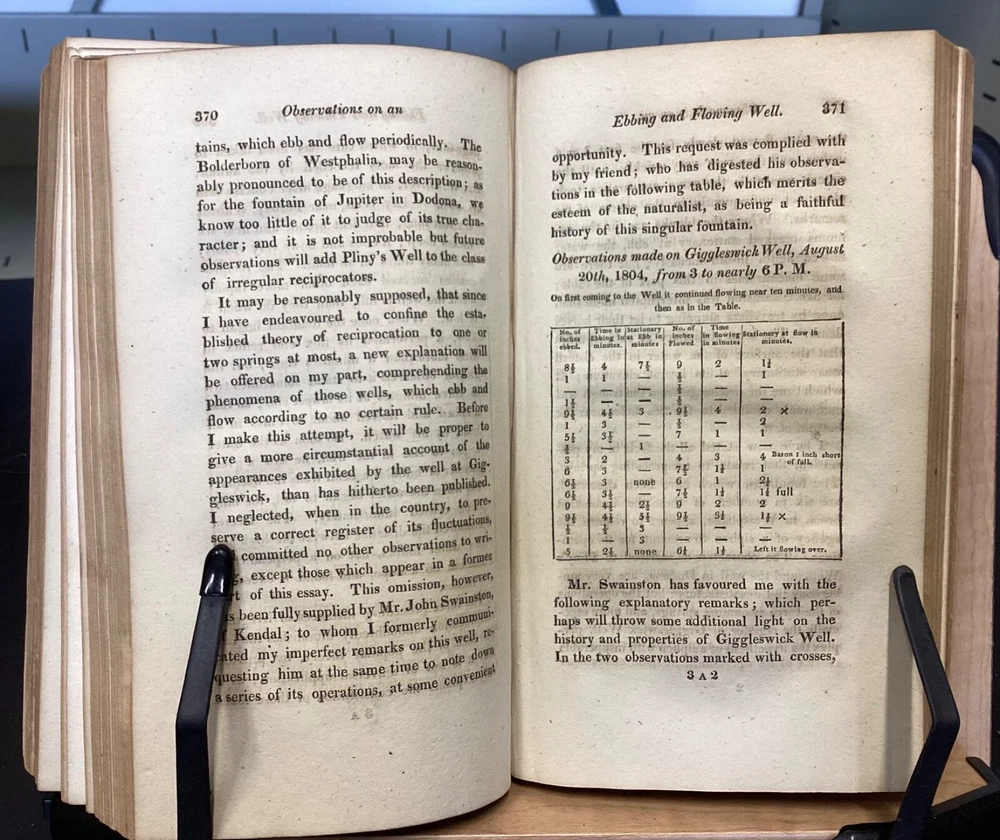 370 Observations on an
tains, which ebb and flow periodically. The
Bolderborn of Westphalia, may be reason-
ably pronounced to be of this description; as
for the fountain of Jupiter in Dodona, we
know too little of it to judge of its true cha-
racter; and it is not improbable but future
observations will add Pliny's Well to the class
of irregular reciprocators.
It may be reasonably supposed, that since
I have endeavoured to confine the esta-
blished theory of reciprocation to one or
two springs at most, a new explanation will
be offered on my part, comprehending the
phenomena of those wells, which ebb and
flow according to no certain rule. Before
I make this attempt, it will be proper to
give a more circumstantial account of the
appearances exhibited by the well at Gig-
gleswick, than has hitherto been published.
I neglected, when in the country, to pre-
serve a correct register of its fluctuations,
committed no other observations to wri-
except those which appear in a former
of this essay. This omission, however,
been fully supplied by Mr. John Swainston,
Kendal; to whom I formerly communi-
cated my imperfect remarks on this well, re-
questing him at the same time to note down
a series of its operations, at some convenient
Ebbing and Flowing Well. 371
opportunity. This request was complied with
by my friend; who has digested his observa-
tions in the following table, which merits the
esteem of the naturalist, as being a faithful
history of this singular fountain.
Observations made on Giggleswick Well, August
20th, 1804, from 3 to nearly 6 P. M.
On first coming to the Well it continued flowing near ten minutes, and
then as in the Table.
No. of inches ebbed. Time in Ebbing in minutes. Stationary at Ebb in minutes No. of inches Flowed. Time in flowing in minutes Stationary at flow in minutes.
8½ 4 7½ 9 2
1 1 — — 1
— — — — —
— — — —
9½ 4½ 3 9½ 4 2 ×
1 3 — — 2
5½ 3½ — 7 1 1
— 1 — — —
3 2 — 4 3 4 Bason 1 inch short of full.
6 3 — 7½ 1
3 none 6 1
3½ — 7½ full
9 4½ 2½ 9 2 2
9½ 4½ 5½ 9½ 3½ ×
3 — — —
1 — 3 — — —
5 none Left it flowing over.
Mr. Swainston has favoured me with the
following explanatory remarks; which per-
haps will throw some additional light on the
history and properties of Giggleswick Well.
In the two observations marked with crosses,
3 A 2